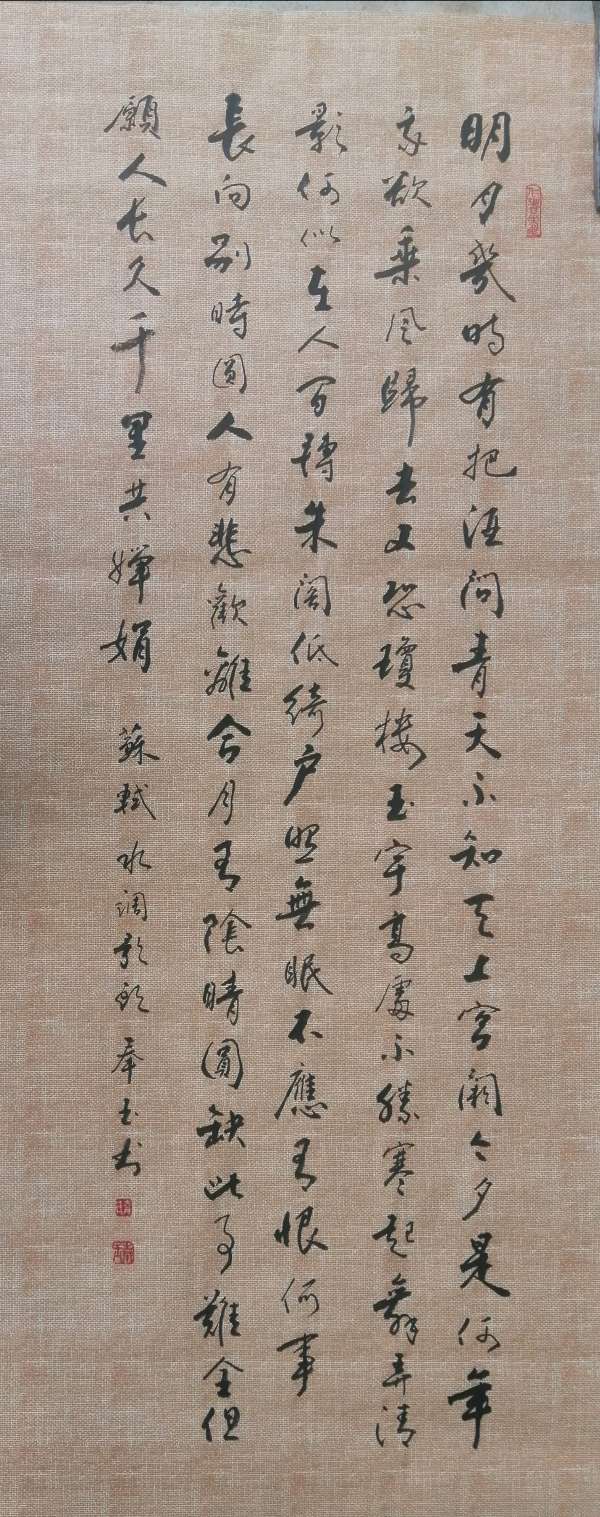 明月幾時有把酒問青天不知天上宮闕今夕是何年
我欲乘風歸去又恐瓊樓玉宇高處不勝寒起舞弄清
影何似在人間轉朱閣低綺戶照無眠不應有恨何事
長向別時圓人有悲歡離合月有陰晴圓缺此事難全但
願人長久千里共嬋娟 蘇軾水調歌頭 奉玉书